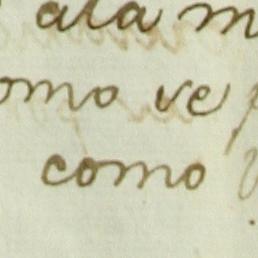 ala m
omo ve
como